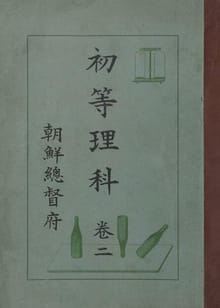 初等理科
卷二
朝鮮總督府